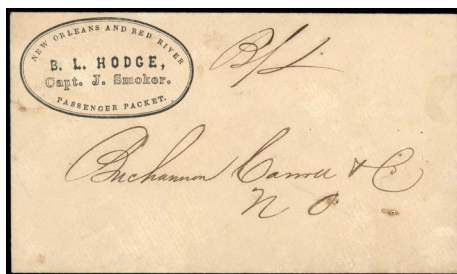 NEW ORLEANS AND RED RIVER
B. L. HODGE,
Capt. J. Smoker.
PASSENGER PACKET.
B/L
Buchannon Carroll & Co
N O